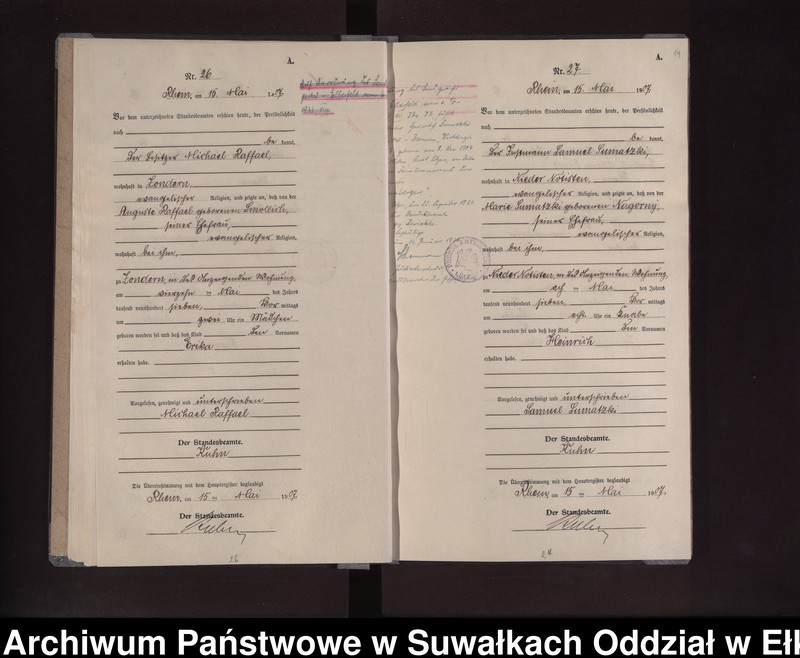 A.
Nr. 26
Rhein, am 15 ten Mai 1907
Vor dem unterzeichneten Standesbeamten erschien heute, der Persönlichkeit
nach
be kannt,
Der Besitzer Michael Raffael,
wohnhaft in Zondern,
evangelischer Religion, und zeigte an, daß von der
Auguste Raffael geborenen
seiner Ehefrau,
evangelischer Religion,
wohnhaft bei ihm,
zu Zondern, in des Anzeigenden Wohnung,
am vierzehn ten Mai des Jahres
tausend neunhundert sieben, Vor mittags
um zwei Uhr ein Mädchen
geboren worden sei und daß das Kind den Vornamen
Erika
erhalten habe.
Vorgelesen, genehmigt und unterschrieben
Michael Raffael
Der Standesbeamte.
Kuhn
Die Übereinstimmung mit dem Hauptregister beglaubigt
Rhein, am 15 ten Mai 1907.
Der Standesbeamte.
Kuhn
A.
Nr. 27.
Rhein, am 15 ten Mai 1907
Vor dem unterzeichneten Standesbeamten erschien heute, der Persönlichkeit
nach
be kannt,
Der Instmann Samuel Sumatzki,
wohnhaft in Nieder Notisten,
evangelischer Religion, und zeigte an, daß von der
Marie Sumatzki geborenen Nagorny,
seiner Ehefrau,
evangelischer Religion,
wohnhaft bei ihm,
zu Nieder Notisten, in des Anzeigenden Wohnung,
am ach ten Mai des Jahres
tausend neunhundert sieben, Vor mittags
um acht Uhr ein Knabe
geboren worden sei und daß das Kind den Vornamen
Heinrich
erhalten habe.
Vorgelesen, genehmigt und unterschrieben
Samuel Sumatzki
Der Standesbeamte.
Kuhn
Die Übereinstimmung mit dem Hauptregister beglaubigt
Rhein, am 15 ten Mai 1907.
Der Standesbeamte.
Kuhn
Archiwum Państwowe w Suwałkach Oddział w Eł